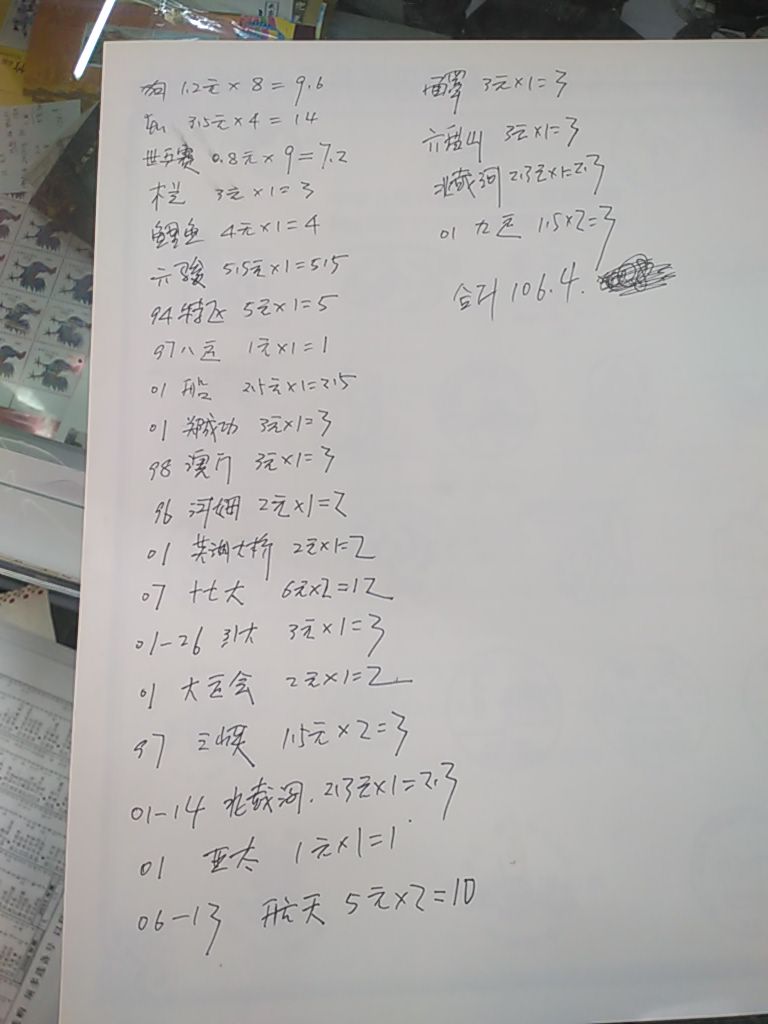 狗 1.2元×8=9.6
3.5元×4=14
世乒赛 0.8元×9=7.2
木兰 3元×1=3
鲤鱼 4元×1=4
六骏 5.5元×1=5.5
94特区 5元×1=5
97八运 1元×1=1
01 船 2.5元×1=2.5
01 郑成功 3元×1=3
98 澳厅 3元×1=3
96 河姆 2元×1=2
01 芜湖大桥 2元×1=2
07 十七大 6元×2=12
01-26 引大 3元×1=3
01 大运会 2元×1=2
97 三峡 1.5元×2=3
01-14 北戴河. 2.3元×1=2.3
01 亚太 1元×1=1
06-13 航天 5元×2=10
3元×1=3
六盘山 3元×1=3
北戴河 2.3元×1=2.3
01 九运 1.5×2=3
合计 106.4.